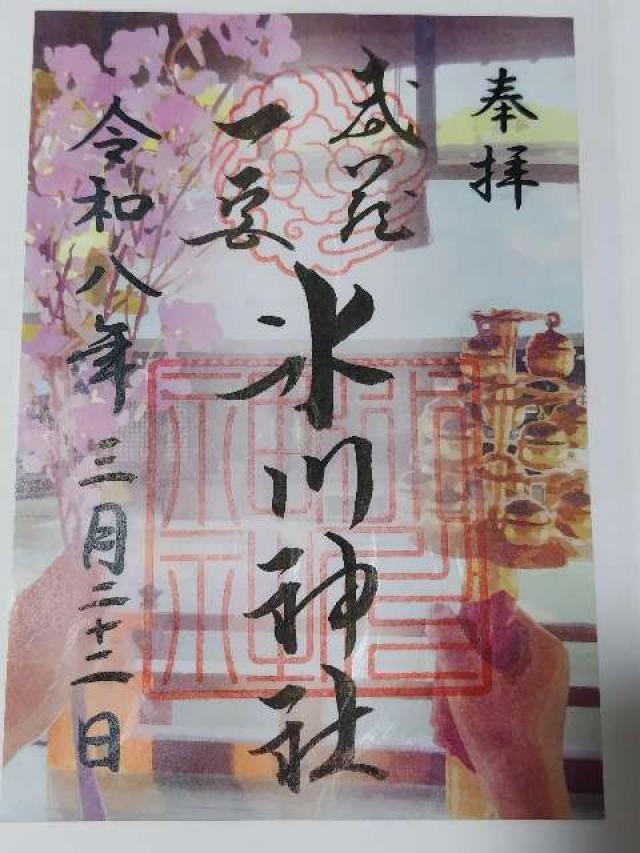 奉拝
武蔵
一宮
氷川神社
令和八年三月二十二日